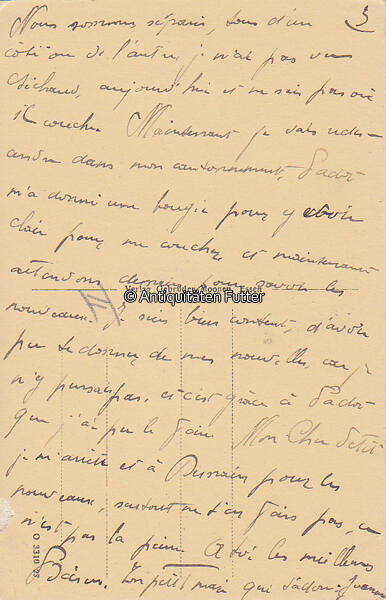 3
Nous sommes séparés, tous d'un
côté ou de l'autre, je n'ai pas vu
Michaud, aujourd'hui et ne sais pas où
il couche. Maintenant je vais redes-
cendre dans mon cantonnement, Padot
m'a donné une bougie pour y voir
clair pour me coucher et maintenant
attendons demain pour savoir les
Verlag Gebrüder Koopen, Essen
© Antiquitäten Futter
nouveaux. Je suis bien content, d'avoir
pu te donner de mes nouvelles, car je
n'y pensais pas, et c'est grâce à Padot
que j'ai pu le faire Mon Cher Petit
je m'arrête et à Demain pour les
nouveaux, surtout ne t'en fais pas, ce
n'est pas la peine. A toi les meilleurs
Baisers. Ton petit mari qui t'adore
O 3310 23